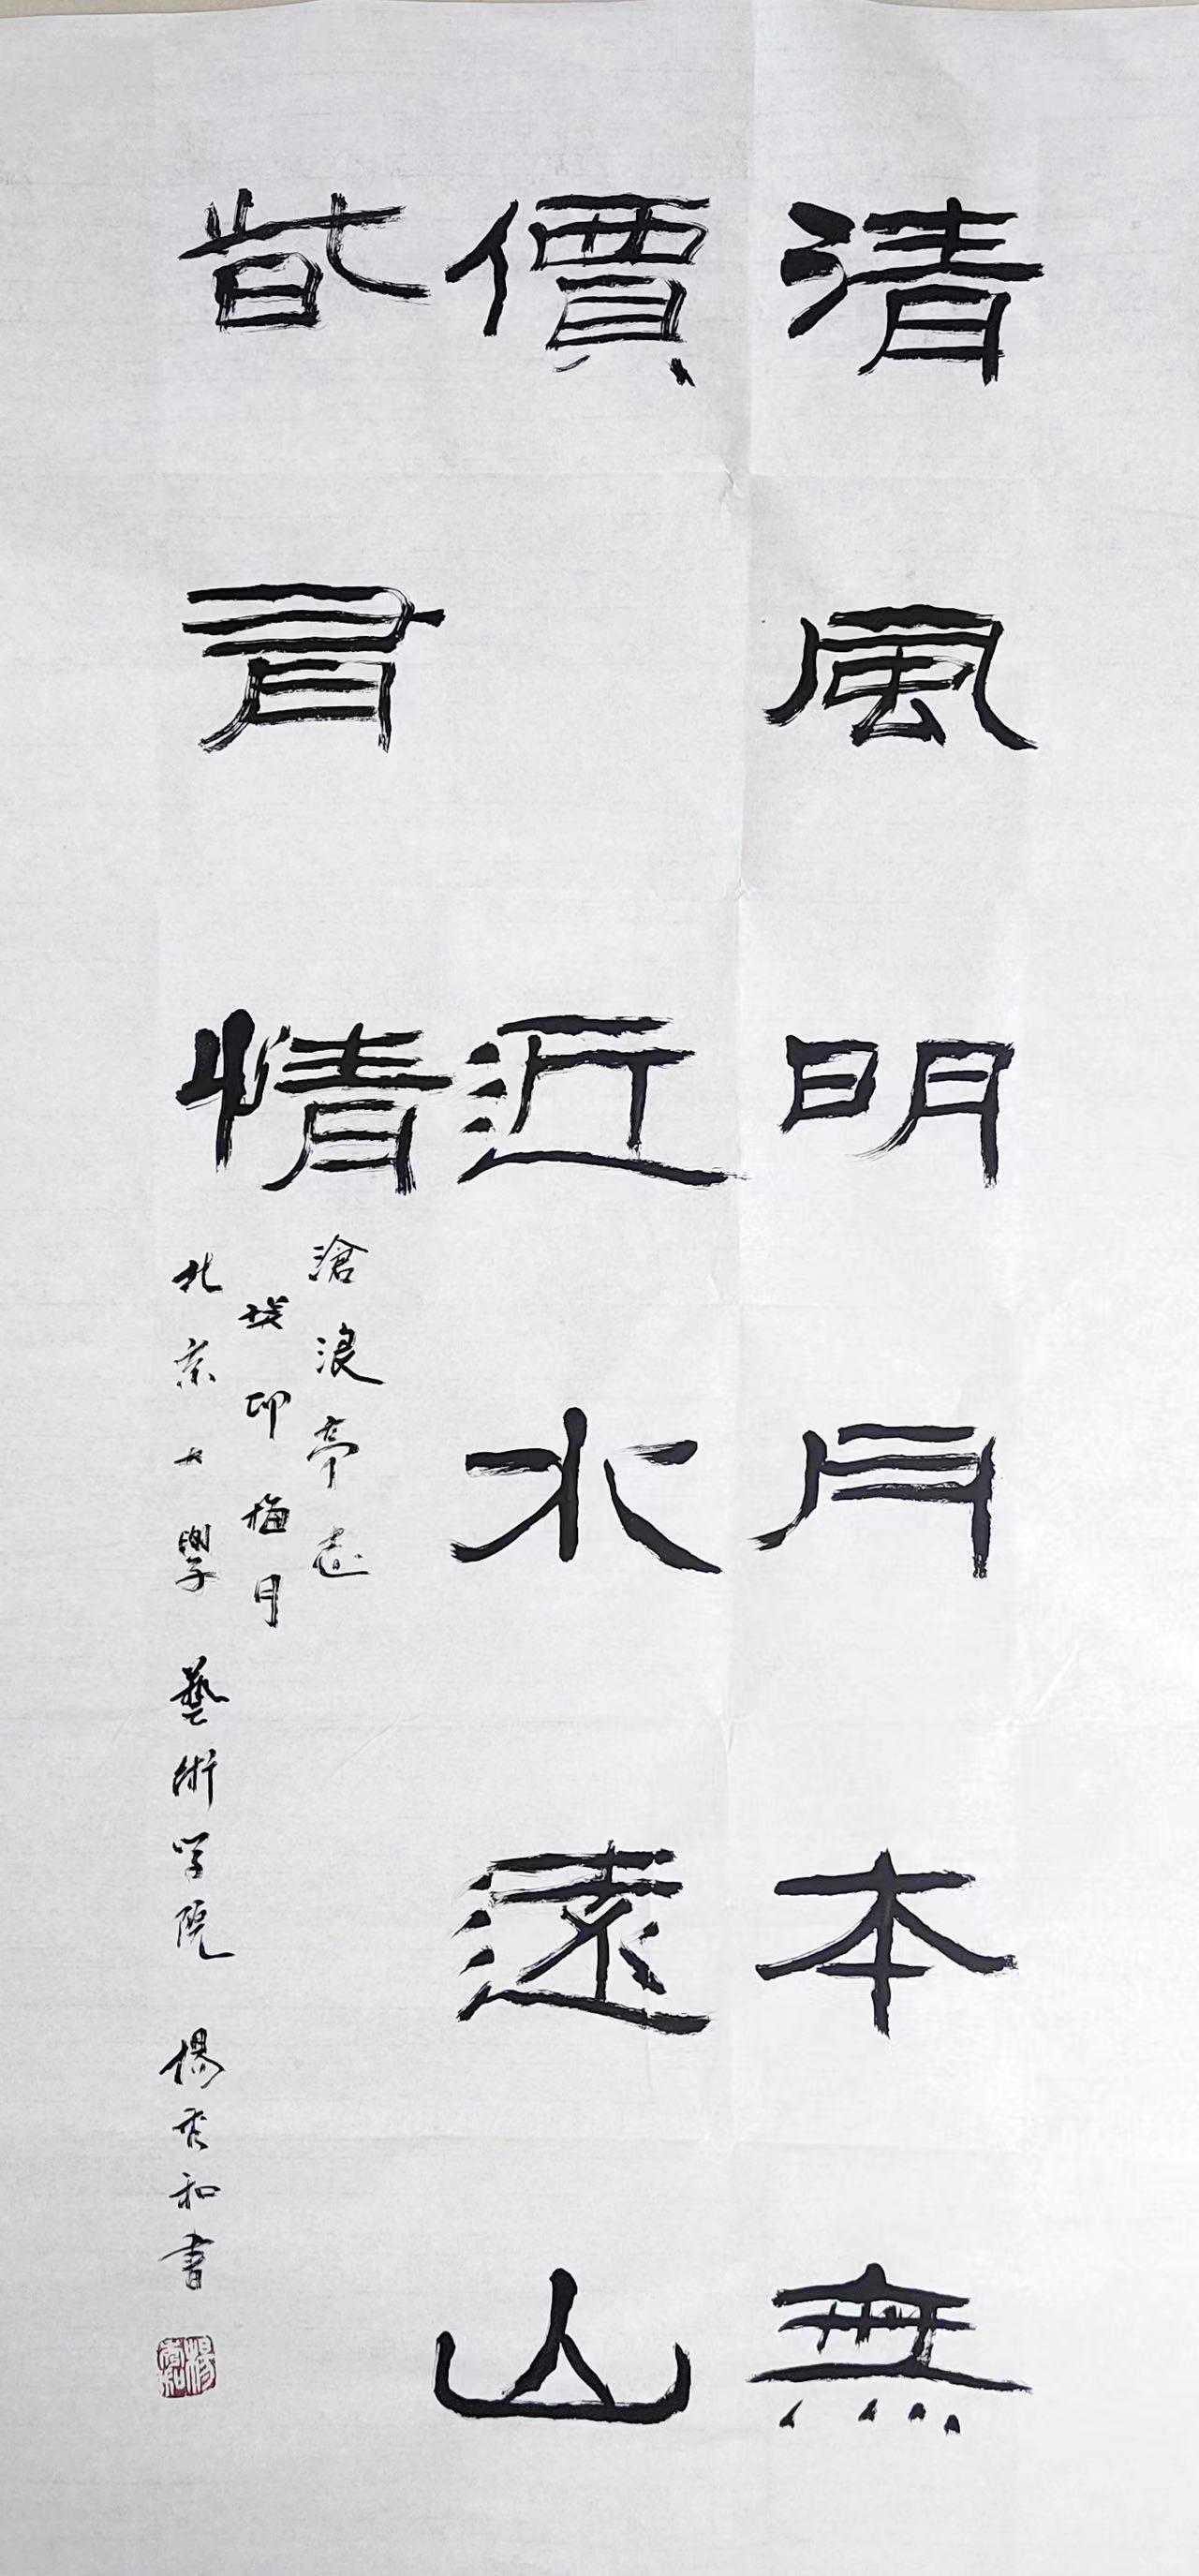 清風明月本無
價 近水遠山
皆有情
滄浪亭
癸卯梅月
北京大學藝術学院 楊和書